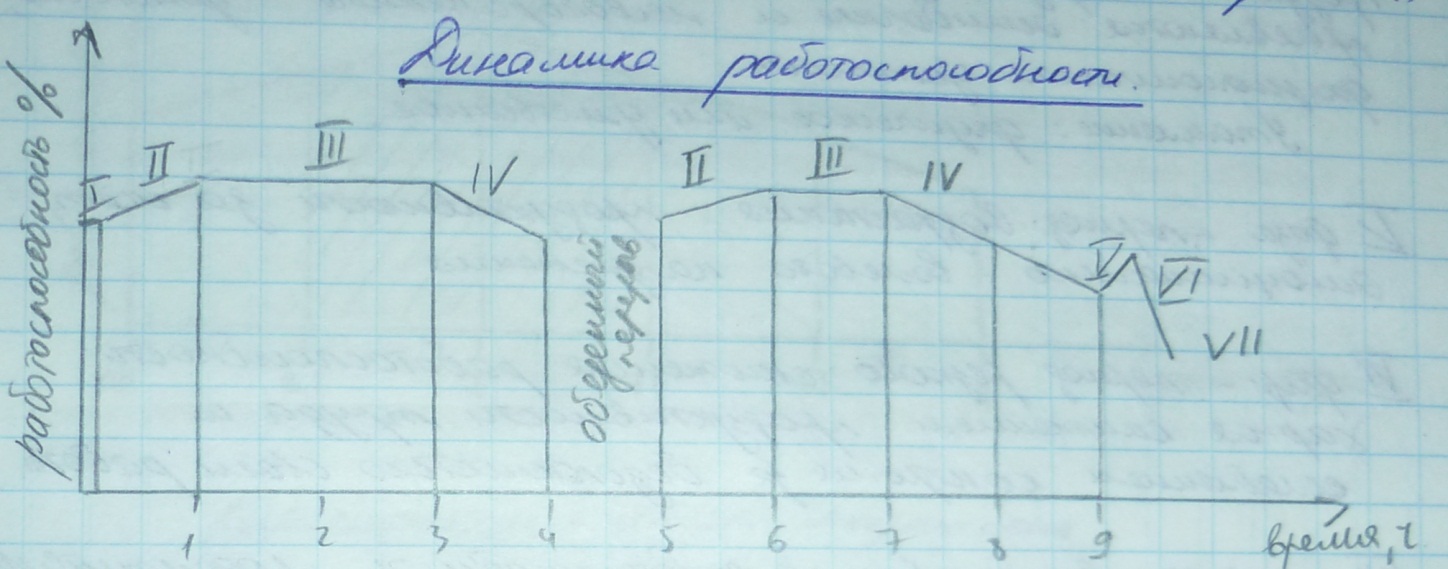 Динамика работоспособности.
работоспособность %
I
II
III
IV
обеденный
перерыв
II
III
IV
V
VI
VII
1 2 3 4 5 6 7 8 9
время, ч